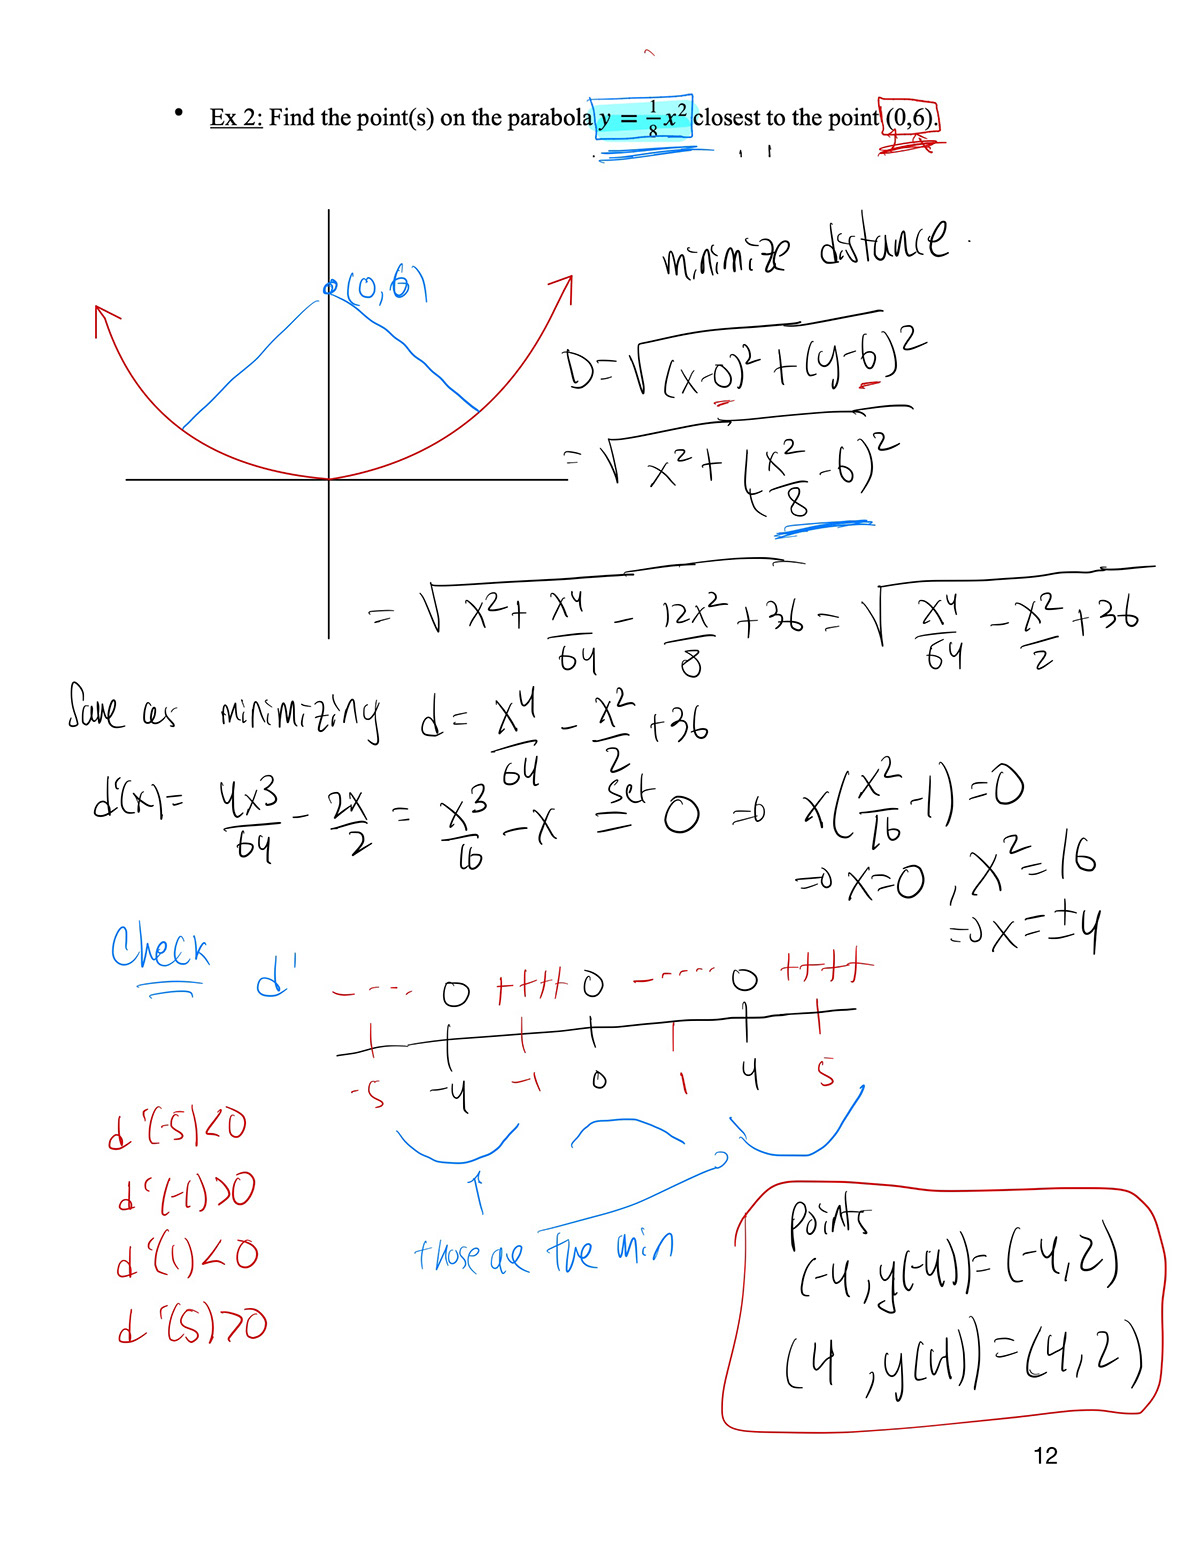 • Ex 2: Find the point(s) on the parabola y = 1/8 x² closest to the point (0,6).
minimize distance.
(0,6)
D = √((x-0)² + (y-6)²)
= √(x² + (x²/8 - 6)²)
= √(x² + x⁴/64 - 12x²/8 + 36) = √(x⁴/64 - x²/2 + 36)
Same as minimizing d = x⁴/64 - x²/2 + 36
d'(x) = 4x³/64 - 2x/2 = x³/16 - x set = 0 ⇒ x(x²/16 - 1) = 0
⇒ x=0, x²=16
⇒ x=±4
Check d' ---- 0 ++++ 0 ----- 0 ++++
-5 -4 -1 0 1 4 5
d'(-5)<0
d'(-1)>0
d'(1)<0
d'(5)>0
those are the min
points
(-4, y(-4)) = (-4, 2)
(4, y(4)) = (4, 2)
12